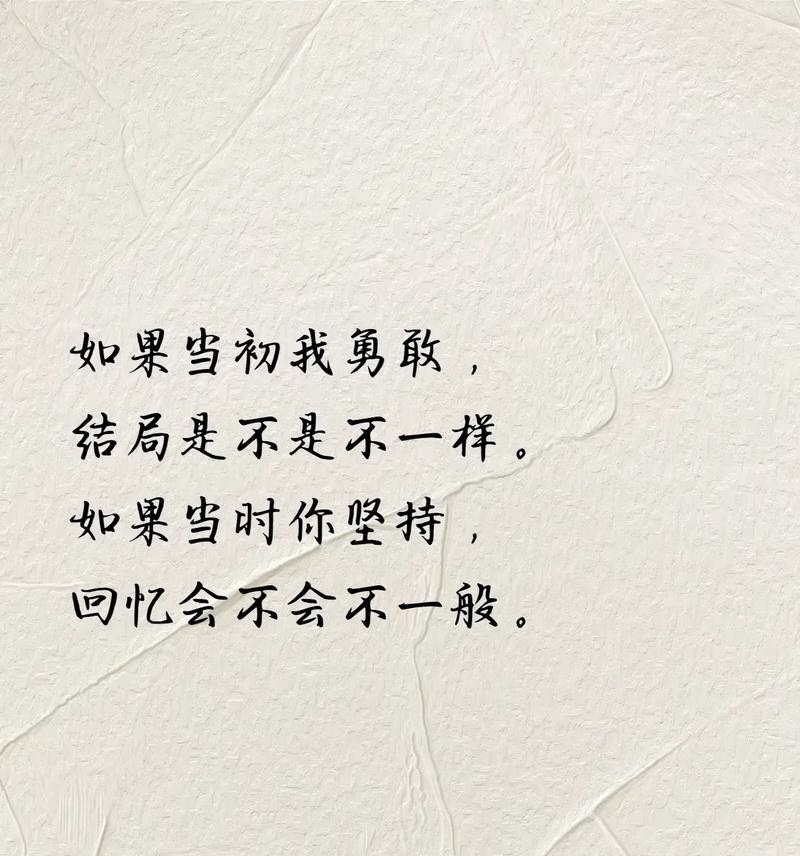 如果当初我勇敢，
结局是不是不一样。
如果当时你坚持，
回忆会不会不一般。